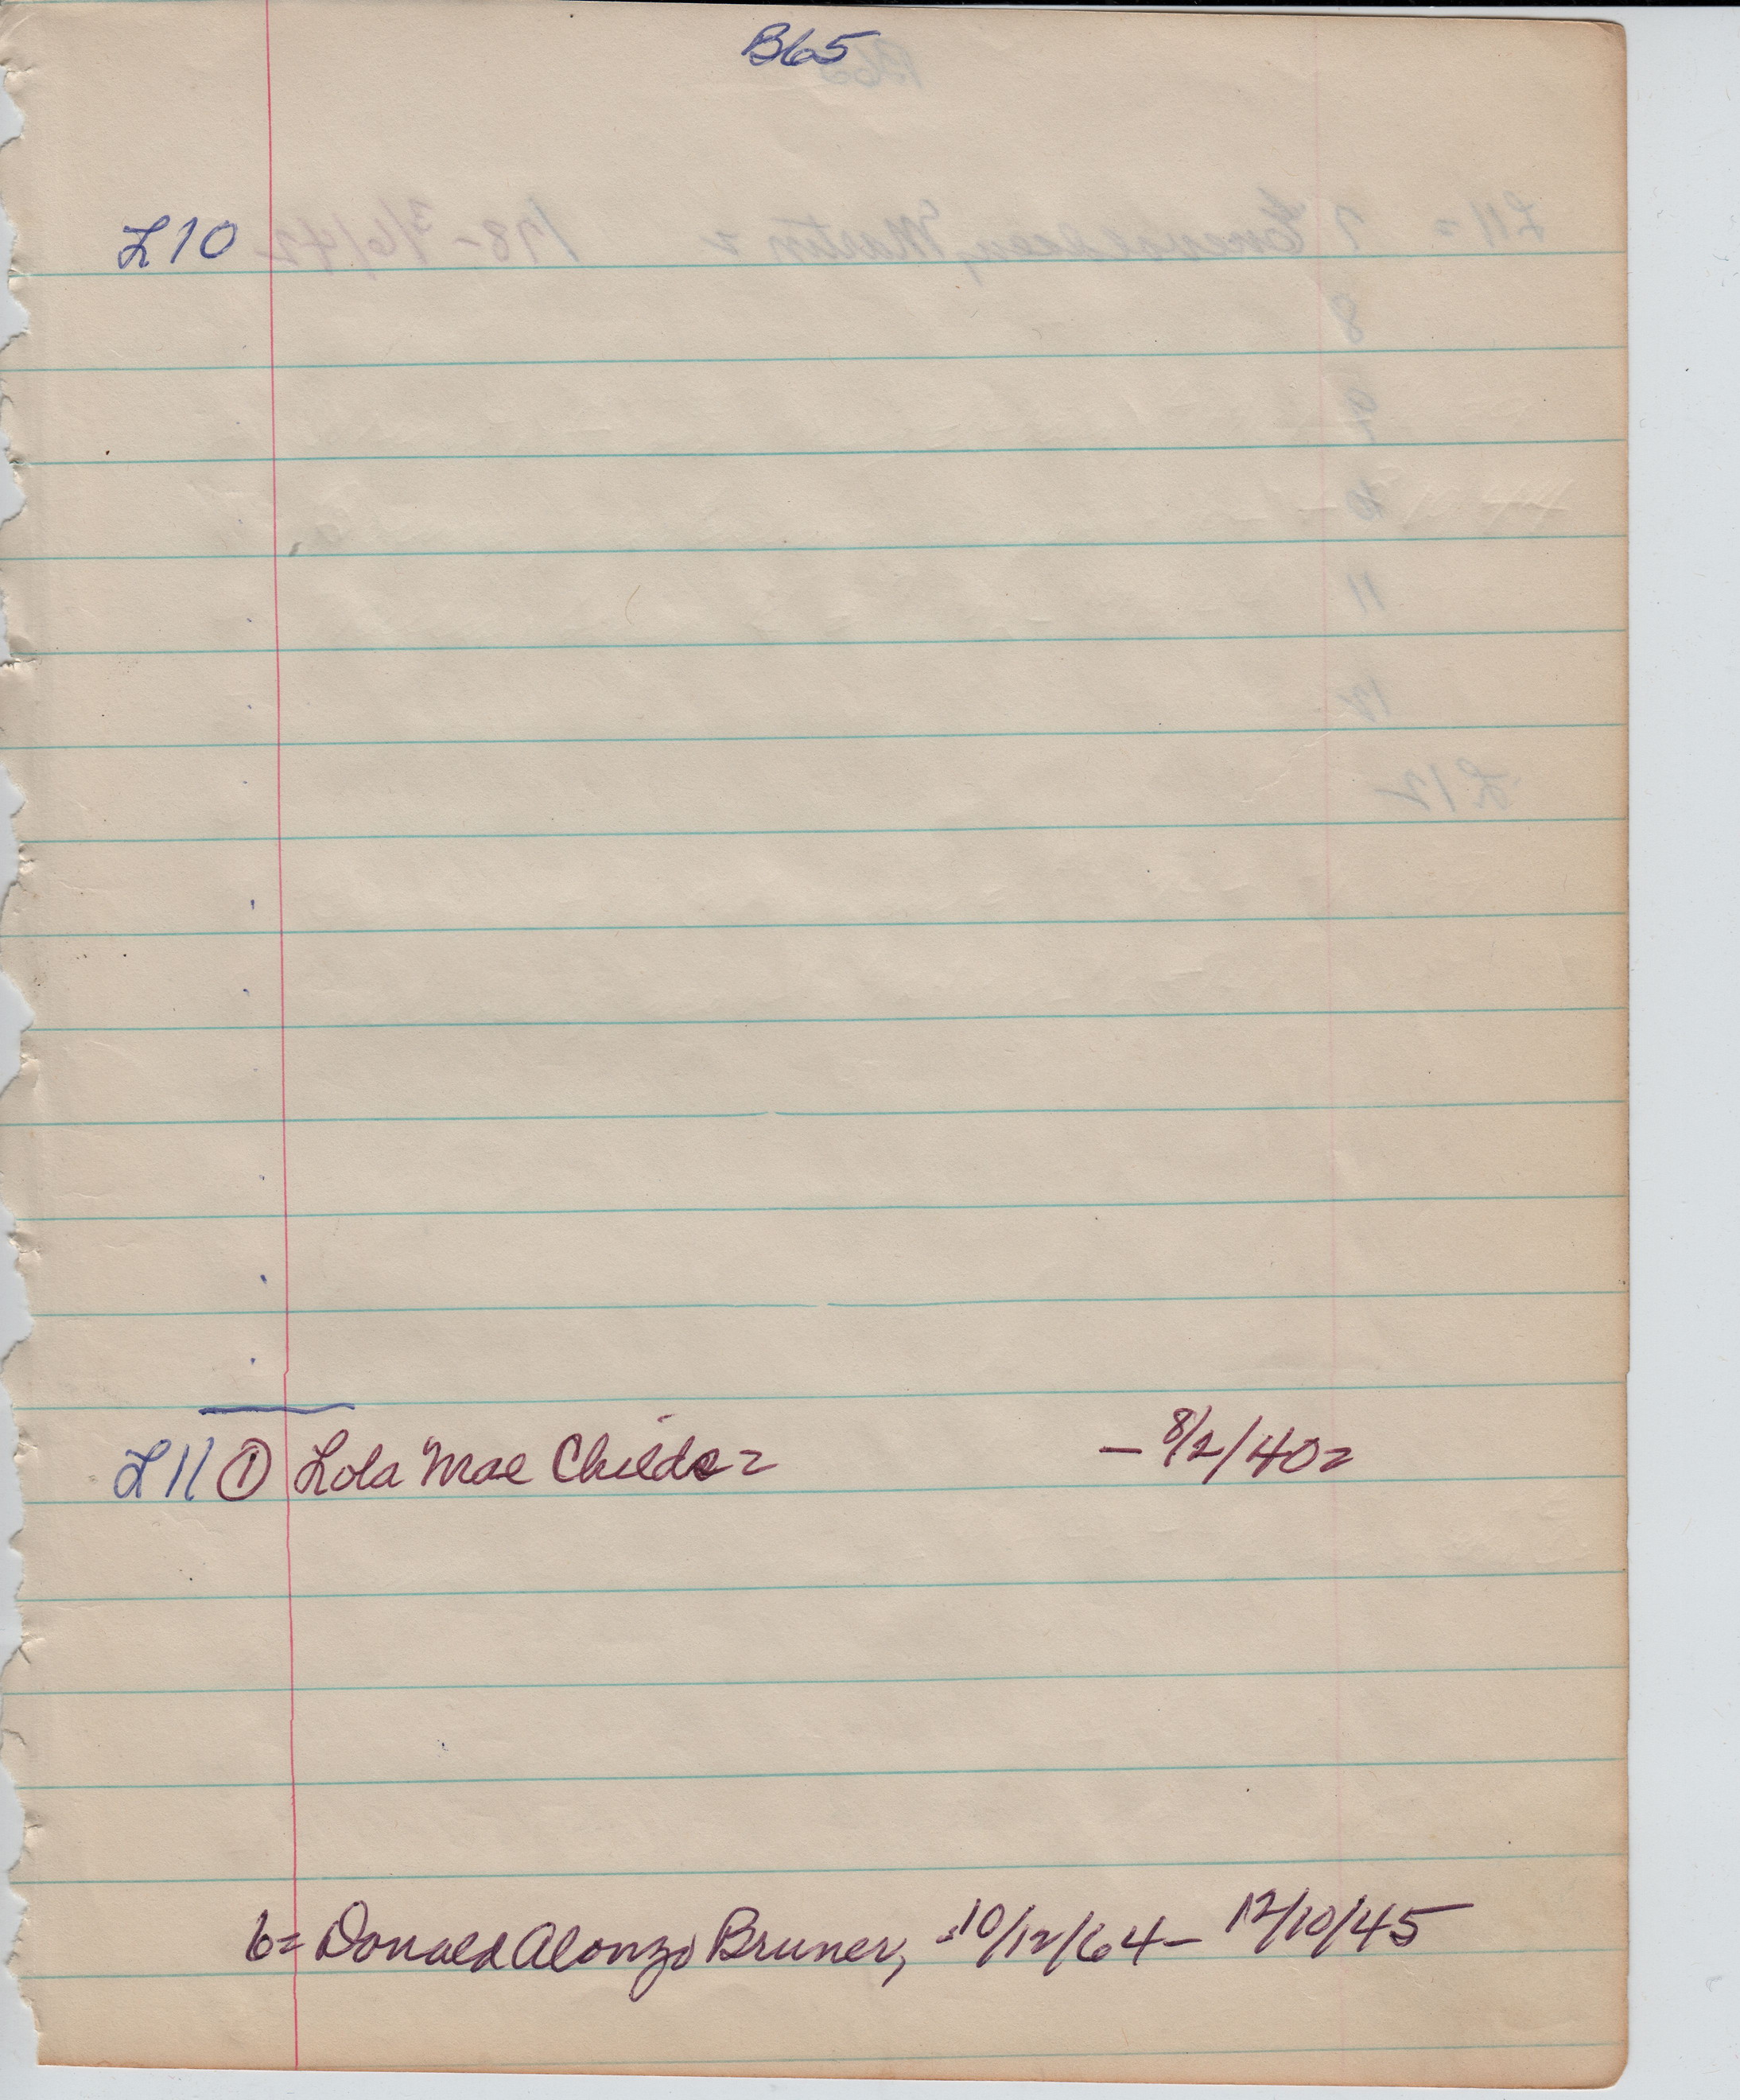 B65
L10
L11 ① Lola Mae Childs = - 8/2/40=
6= Donald Alonzo Bruner, 10/12/64 - 12/10/45